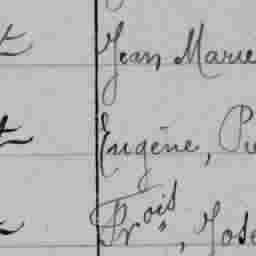 Jean Marie
Eugène, Pie
Frois, José